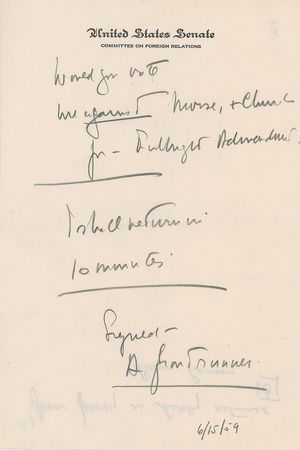 United States Senate
COMMITTEE ON FOREIGN RELATIONS
Would you vote
me against Morse, + Church
for - Fulbright Admendment.
I shall return in
10 minutes
Signed -
A frontrunner.
6/15/59